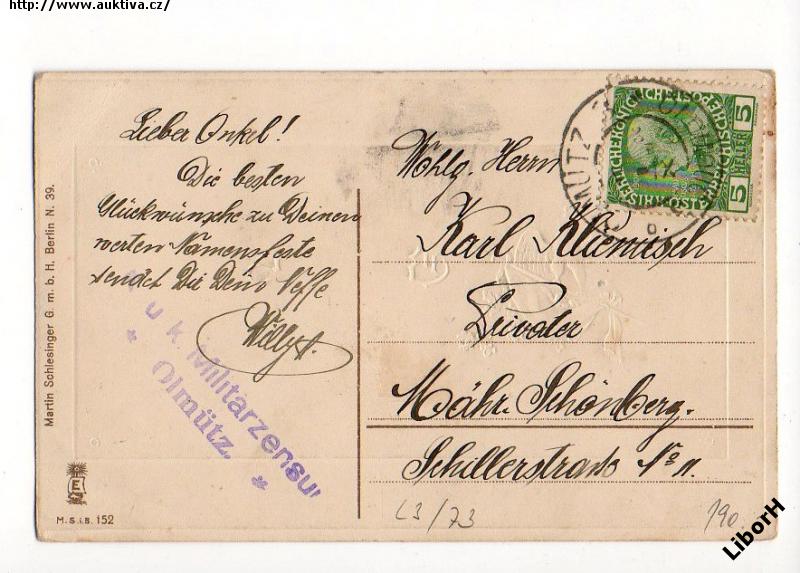 http://www.auktiva.cz/
Lieber Onkel!
Die besten
Glückwünsche zu Deinem
werten Namensfeste
sendet Dir Dein Neffe
Willy
Wohlg. Herrn
Karl
Privater
Mähr. Schönberg.
Schillerstrasse No 11.
5
5
HELLER
u. k. Militärzensur
Olmütz.
Martin Schlesinger G. m. b. H. Berlin N. 39.
E
M.S.i.B. 152
L3/73
190
LiborH